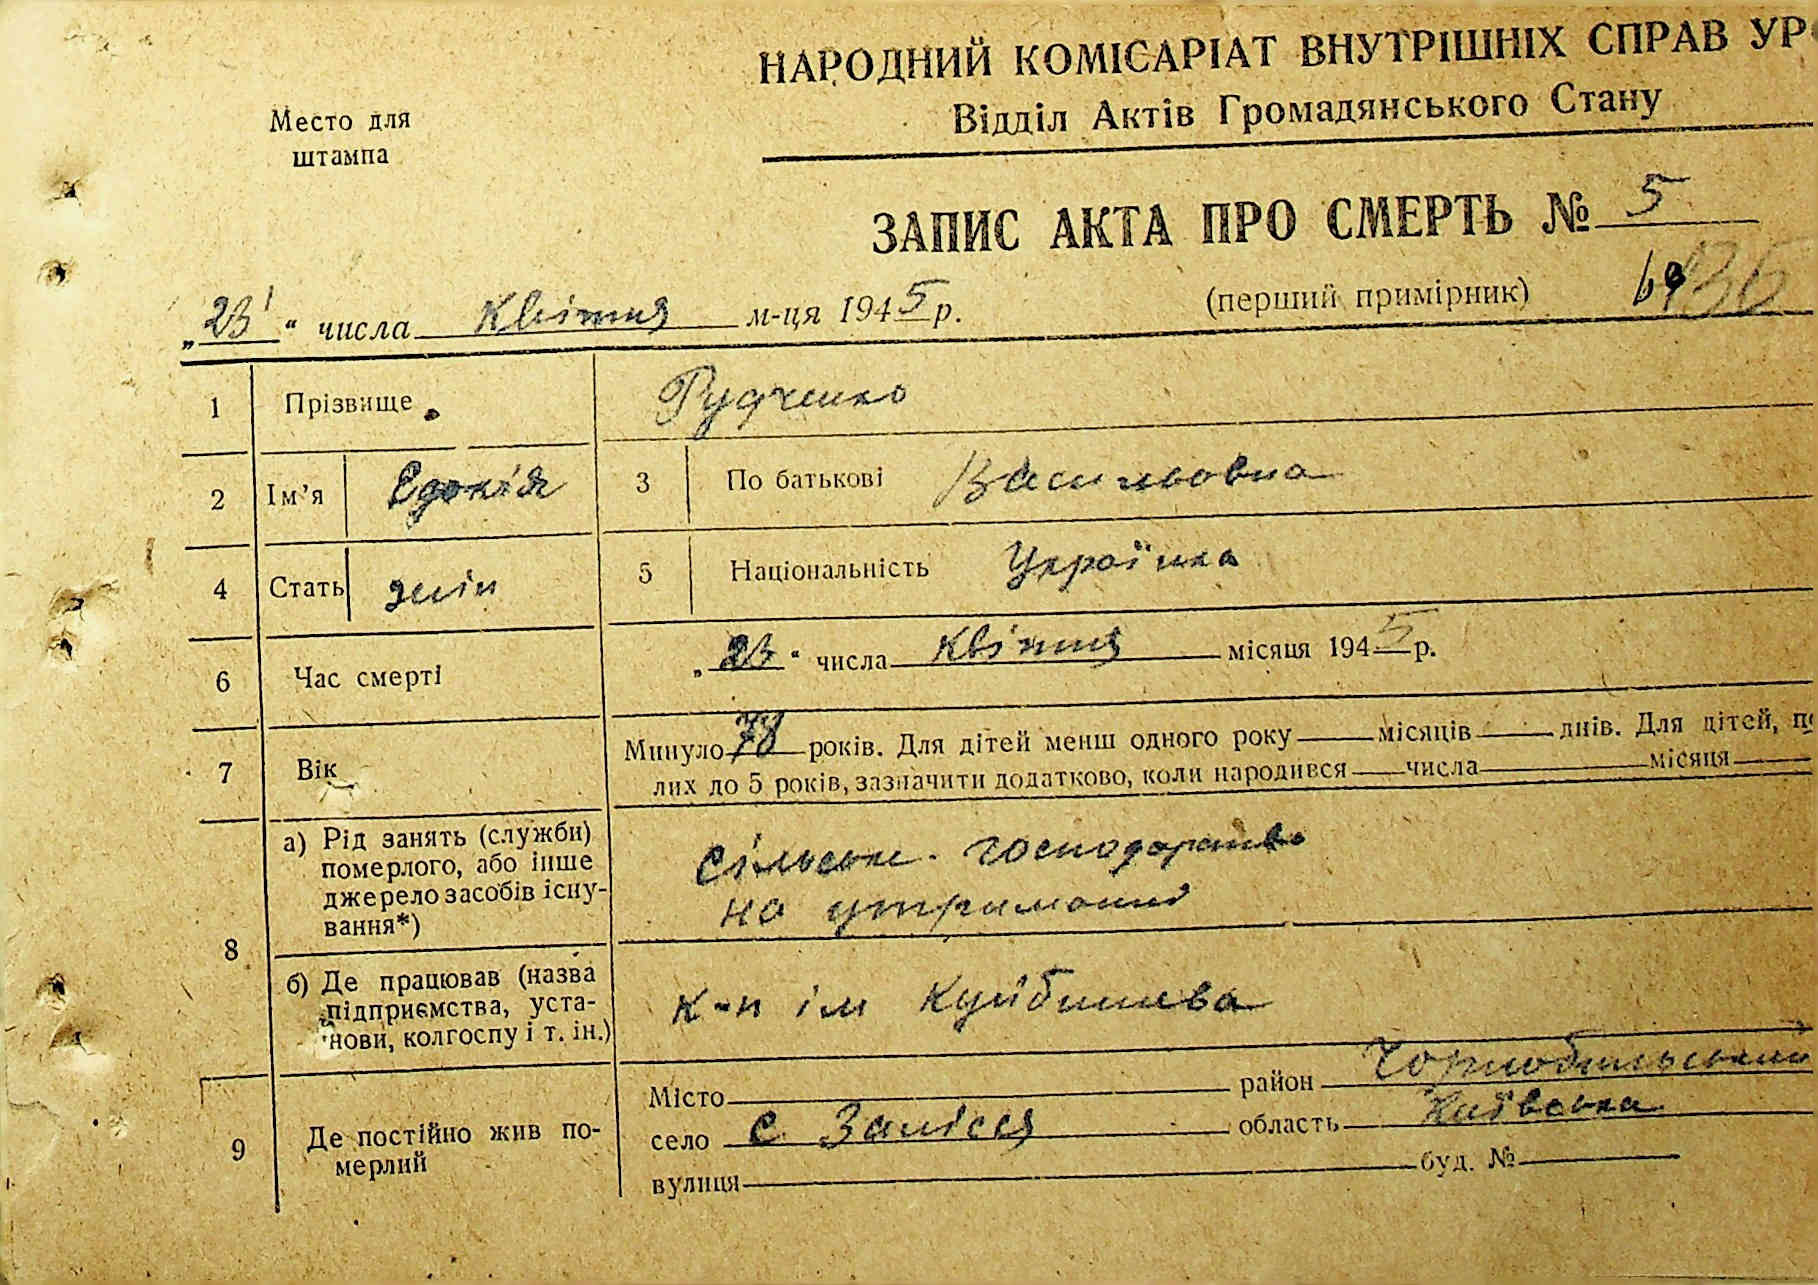 НАРОДНИЙ КОМІСАРІАТ ВНУТРІШНІХ СПРАВ УР
Відділ Актів Громадянського Стану
Место для
штампа
ЗАПИС АКТА ПРО СМЕРТЬ № 5
(перший примірник)
„23“ числа Квітня м-ця 1945 р.
1 Прізвище Рудченко
2 Ім’я Едокія 3 По батькові Васильовна
4 Стать жін 5 Національність Українка
6 Час смерті „23“ числа Квітня місяця 1945 р.
7 Вік Минуло 78 років. Для дітей менш одного року місяців днів. Для дітей,
лих до 5 років, зазначити додатково, коли народився числа місяця
8 а) Рід занять (служби)
померлого, або інше
джерело засобів існу-
вання*)
сільське господарство
на утриманні
б) Де працював (назва
підприємства, уста-
нови, колгоспу і т. ін.)
к-п ім Куйбишева
9 Де постійно жив по-
мерлий
Місто район Чорнобильський
село с Залісся область Київська
вулиця буд. №